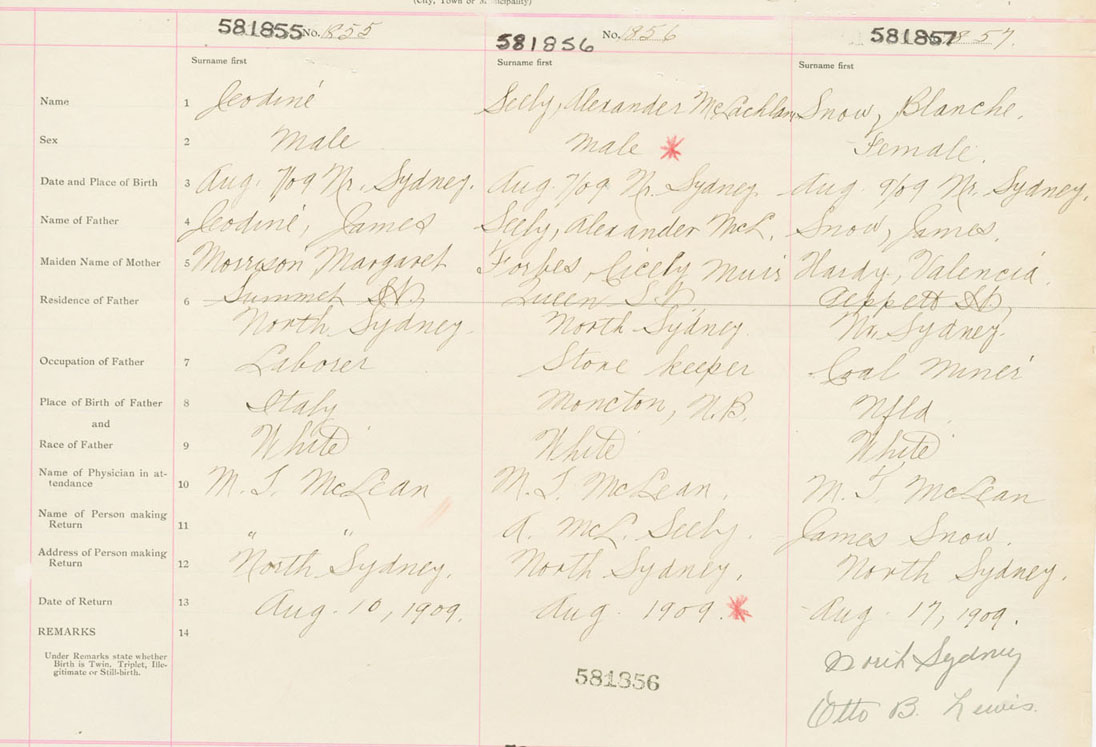 (City, Town or Municipality)
581855 No. 855
581856 No. 856
581857 857.
Surname first Surname first Surname first
Name 1 Jeodiné Seely, Alexander McLachlan Snow, Blanche.
Sex 2 Male Male Female.
Date and Place of Birth 3 Aug. 7/09 Nr. Sydney. Aug. 7/09 Nr. Sydney Aug. 9/09 Nr. Sydney.
Name of Father 4 Jeodiné, James Seely, Alexander McL. Snow, James.
Maiden Name of Mother 5 Morrison Margaret Forbes, Cicely Muir Hardy, Valencia.
Residence of Father 6 Summet St. Queen St.
North Sydney. North Sydney. Nr. Sydney.
Occupation of Father 7 Laborer Store keeper Coal Miner
Place of Birth of Father 8 Italy Moncton, N.B. Nfld
and
Race of Father 9 White White White
Name of Physician in at-
tendance 10 M. T. McLean M. T. McLean. M. T. McLean
Name of Person making
Return 11 " " A. McL. Seely. James Snow.
Address of Person making
Return 12 North Sydney. North Sydney. North Sydney.
Date of Return 13 Aug. 10, 1909. Aug. 1909. Aug. 17, 1909.
REMARKS 14
Under Remarks state whether
Birth is Twin, Triplet, Ille-
gitimate or Still-birth.
North Sydney
581856
Otto B. Lewis.